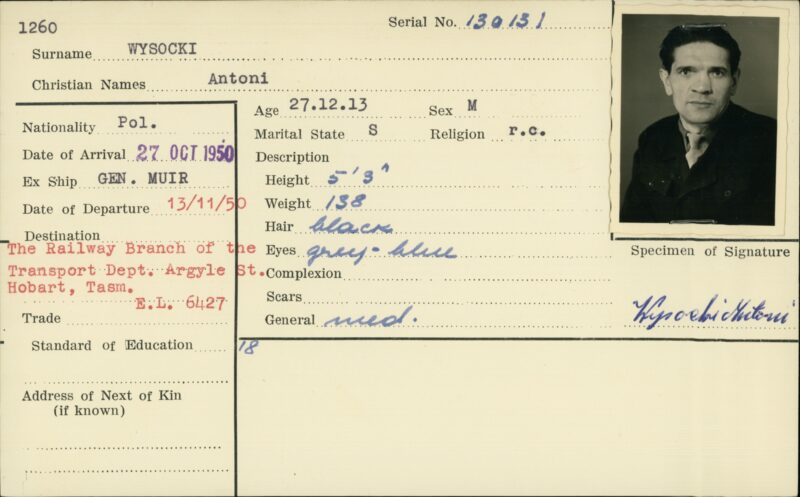 1260
Serial No. 130131
Surname WYSOCKI
Christian Names Antoni
Nationality Pol.
Date of Arrival 27 OCT 1950
Ex Ship GEN. MUIR
Date of Departure 13/11/50
Destination
The Railway Branch of the
Transport Dept. Argyle St.
Hobart, Tasm.
E.L. 6427
Trade
Standard of Education 18
Address of Next of Kin
(if known)
Age 27.12.13 Sex M
Marital State S Religion r.c.
Description
Height 5'3"
Weight 138
Hair black
Eyes grey-blue
Complexion
Scars
General med.
Specimen of Signature
Wysocki Antoni